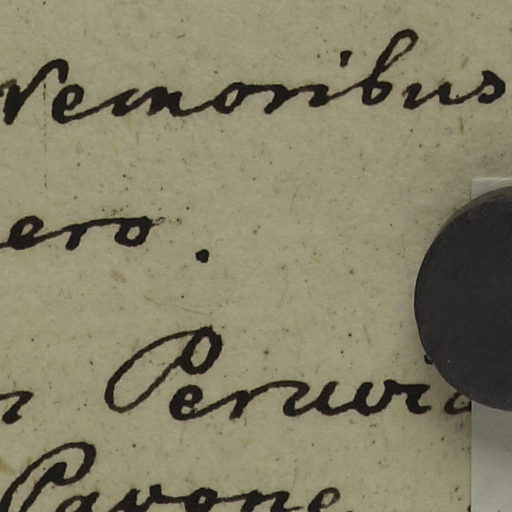 Nemoribus
ero.
Peruvia
Pavone